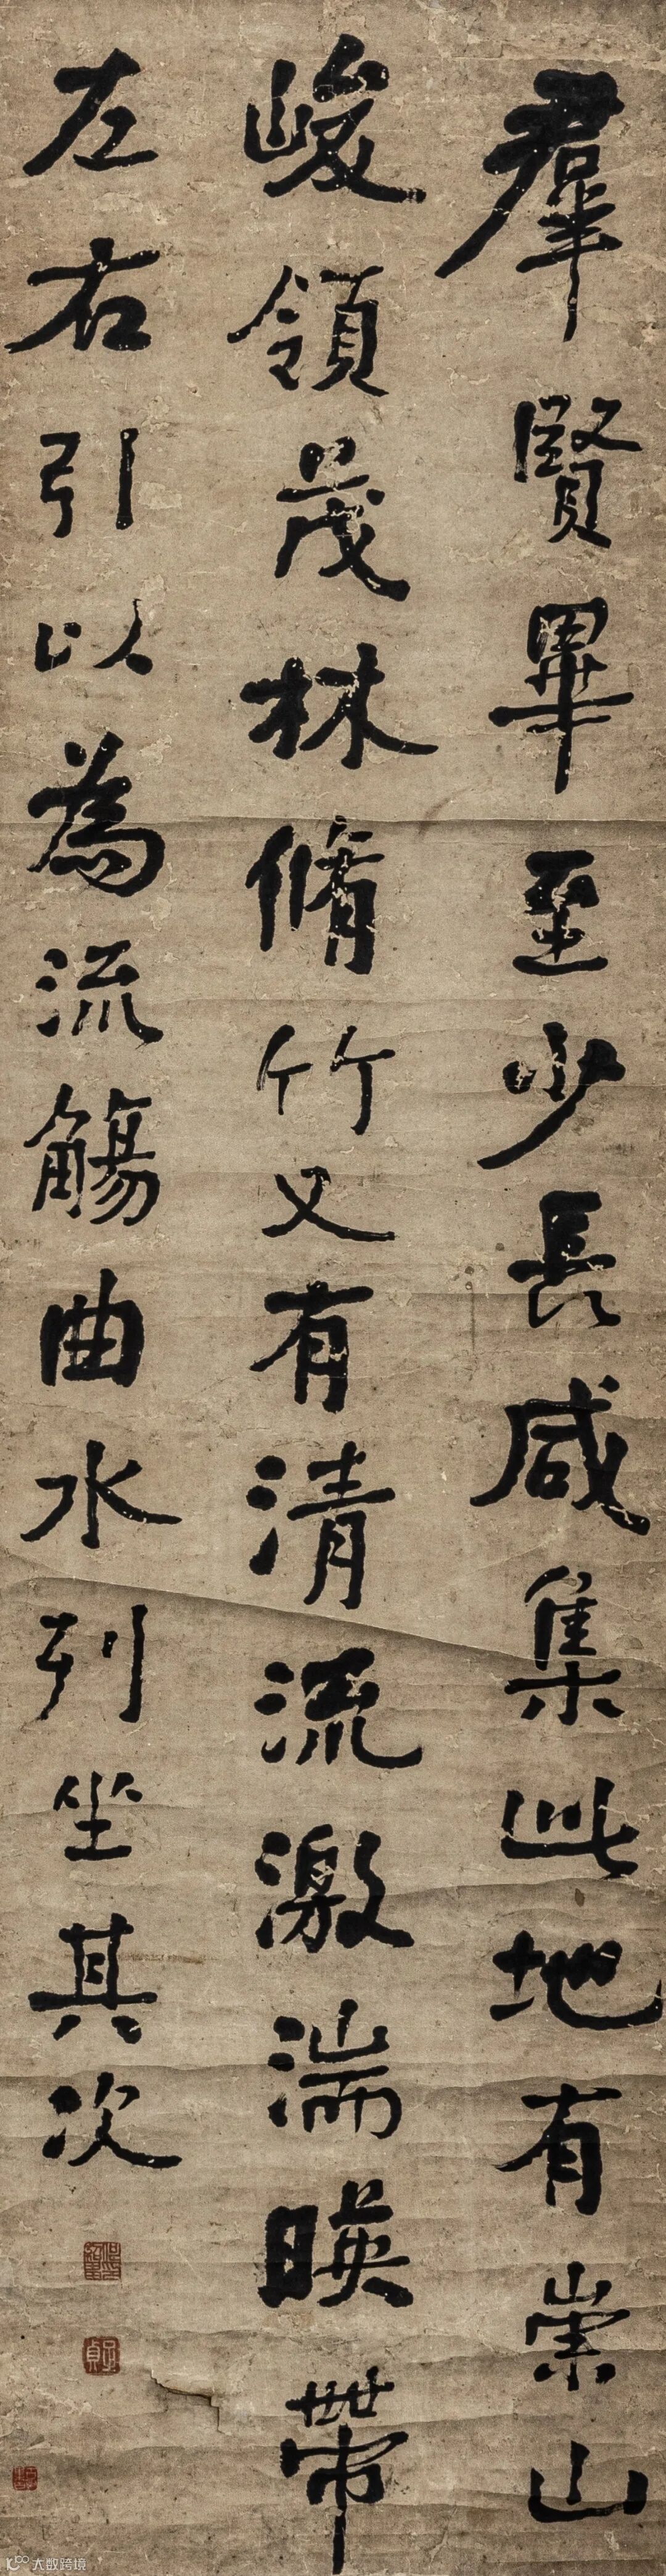 羣賢畢至少長咸集此地有崇山
峻領茂林脩竹又有清流激湍暎帶
左右引以為流觴曲水列坐其次
大数跨境